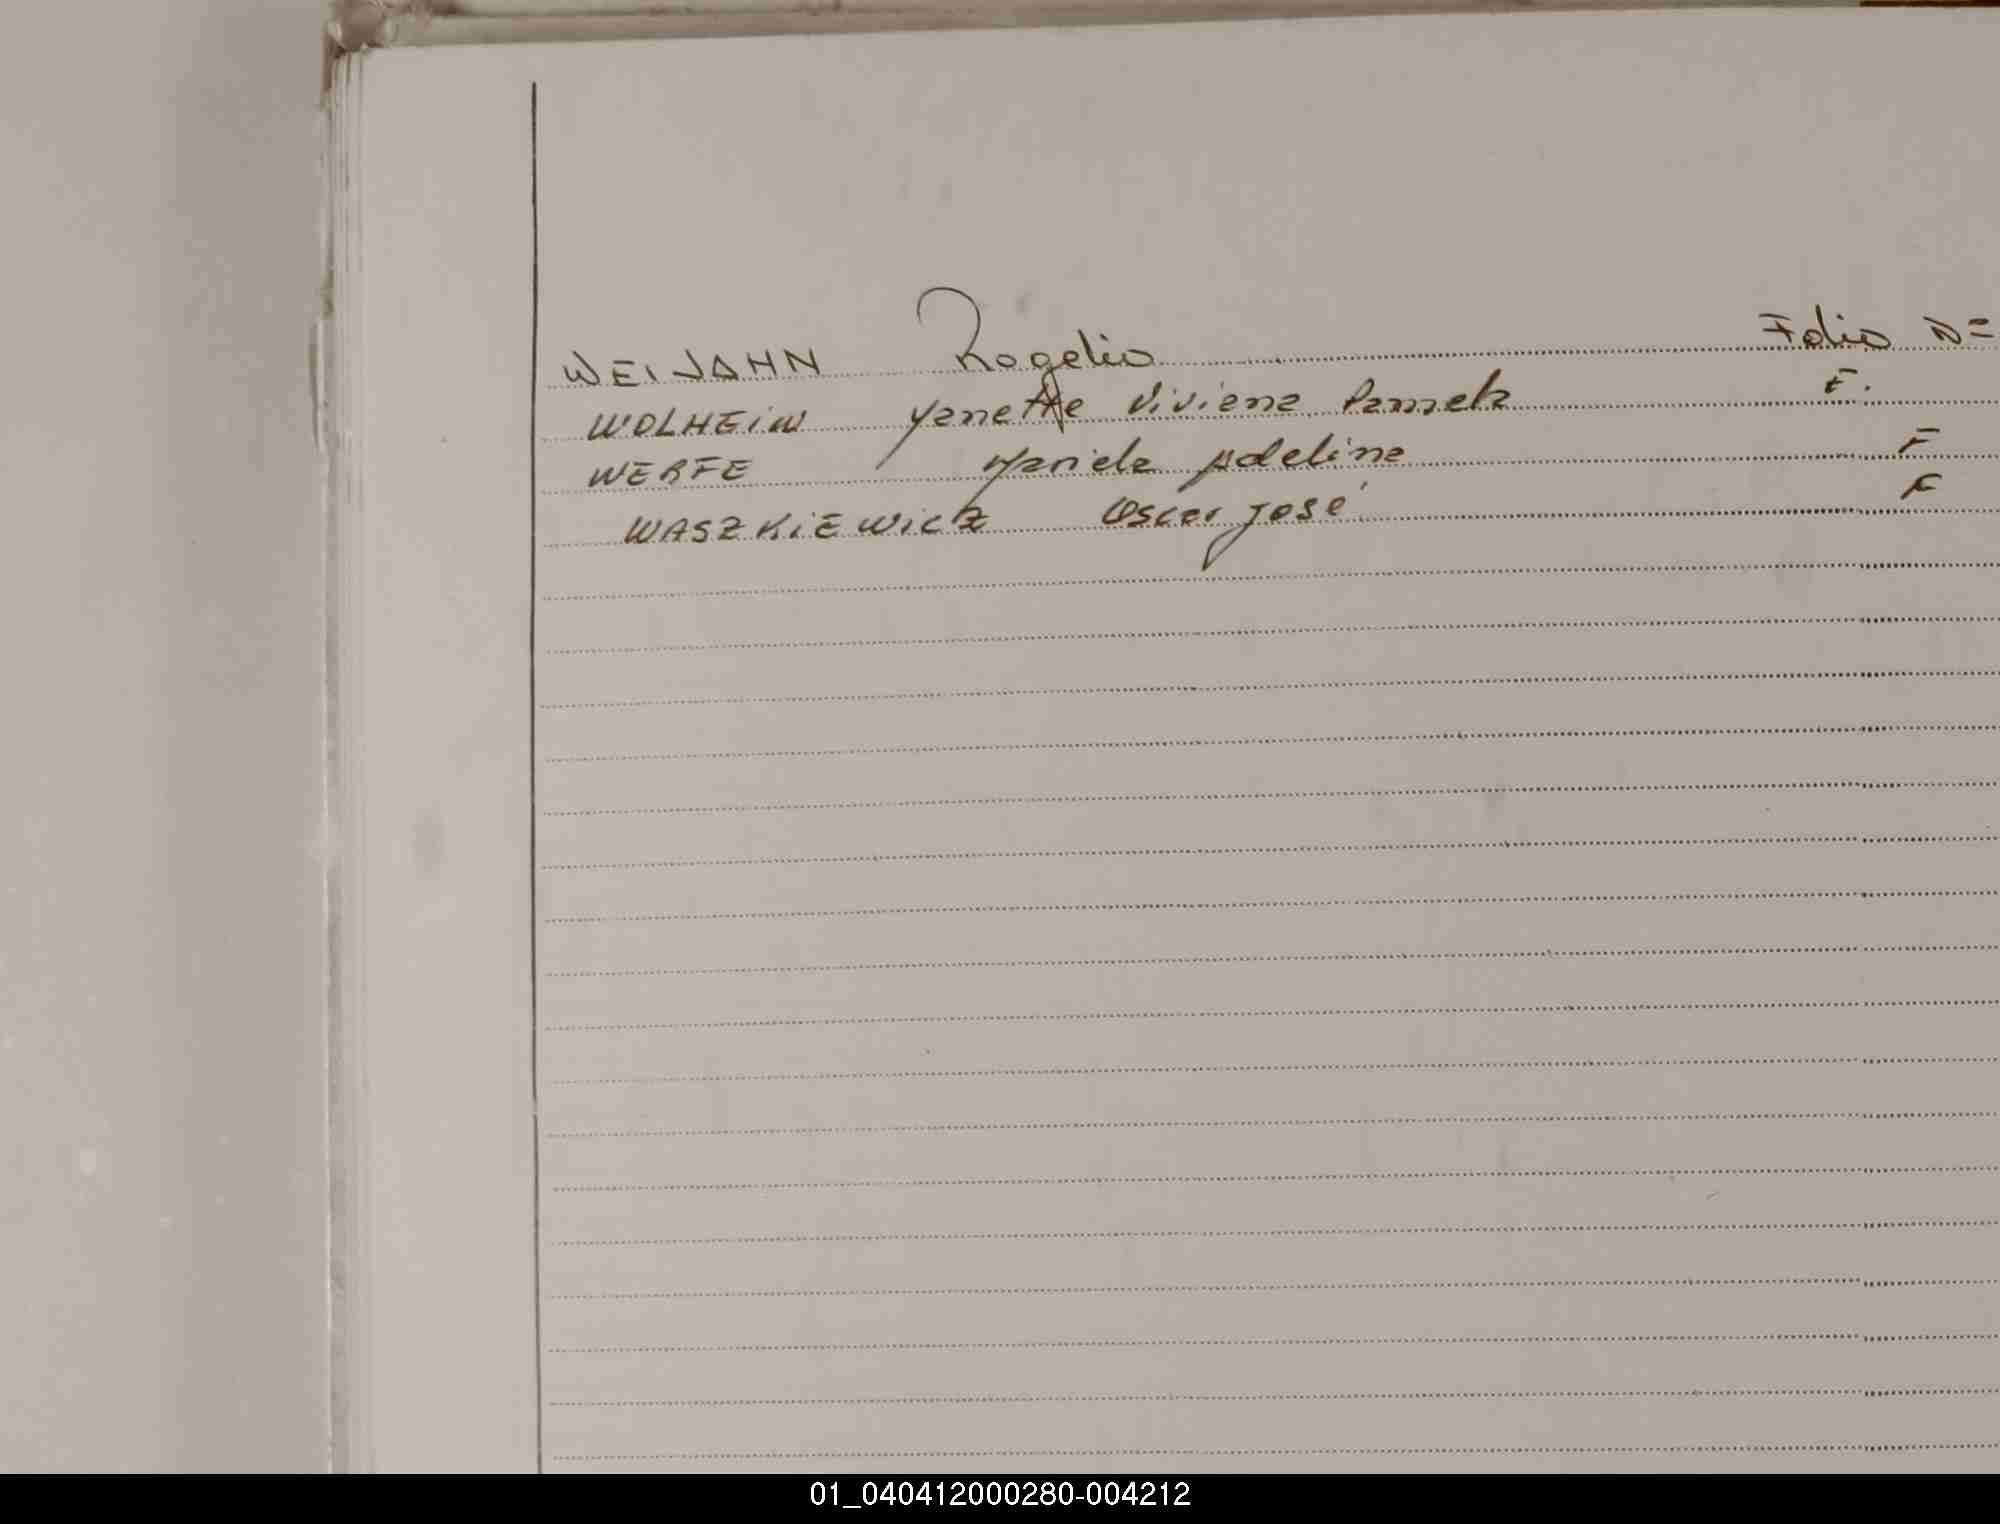 WEIJAHN Rogelio Folio Nº
WOLHEIM Yanette Viviana Pamela F.
WERFE Mariela Adelina F
WASZKIEWICZ Oscar José F
01_040412000280-004212